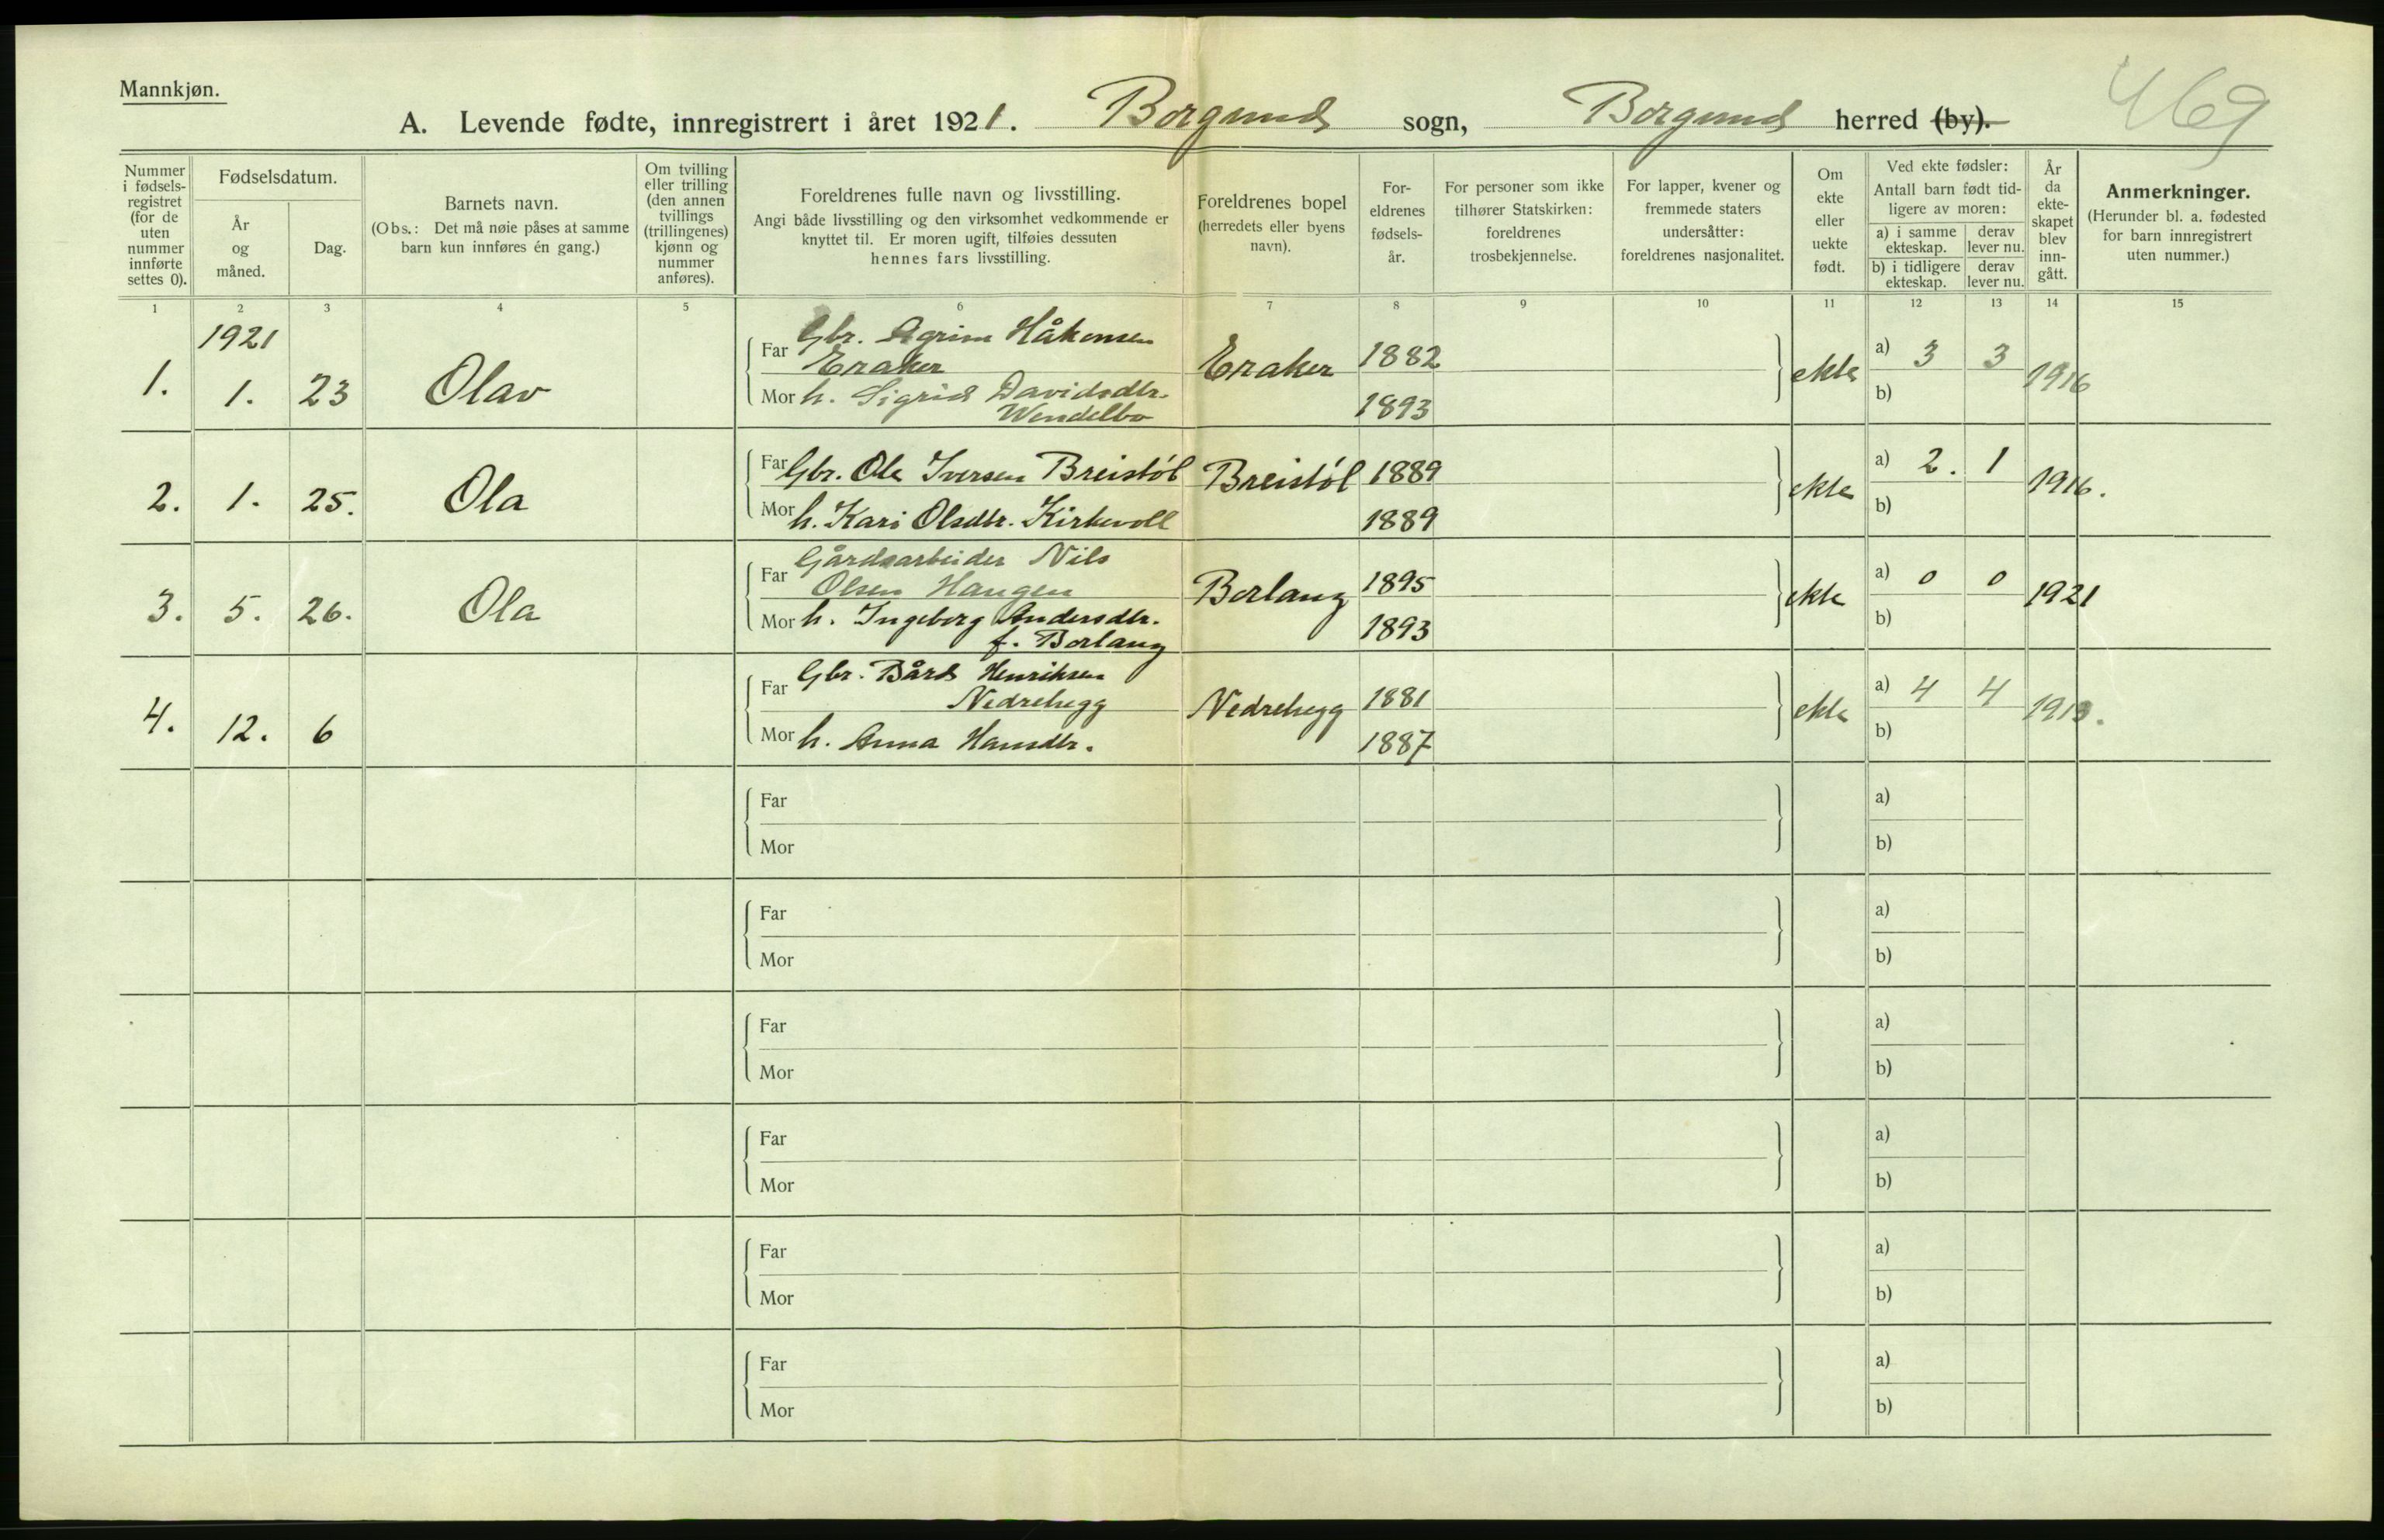 Mannkjøn.
469
A. Levende fødte, innregistrert i året 1921. Borgund sogn, Borgund herred (by).
Nummer i fødsels-registret (for de uten nummer innførte settes 0).
Fødselsdatum.
År og måned.
Dag.
Barnets navn.
(Obs.: Det må nøie påses at samme barn kun innføres én gang.)
Om tvilling eller trilling (den annen tvillings (trillingenes) kjønn og nummer anføres).
Foreldrenes fulle navn og livsstilling.
Angi både livsstilling og den virksomhet vedkommende er knyttet til. Er moren ugift, tilføies dessuten hennes fars livsstilling.
Foreldrenes bopel (herredets eller byens navn).
For-eldrenes fødsels-år.
For personer som ikke tilhører Statskirken: foreldrenes trosbekjennelse.
For lapper, kvener og fremmede staters undersåtter: foreldrenes nasjonalitet.
Om ekte eller uekte født.
Ved ekte fødsler:
Antall barn født tid-ligere av moren:
a) i samme ekteskap.
derav lever nu.
b) i tidligere ekteskap.
derav lever nu.
År da ekte-skapet blev inn-gått.
Anmerkninger.
(Herunder bl. a. fødested for barn innregistrert uten nummer.)
1 2 3 4 5 6 7 8 9 10 11 12 13 14 15
1921
1. 1. 23 Olav
Far Gbr. Agrim Håkonsen
Eraker
Eraker 1882 ekte a) 3 3 1916
Mor h. Sigrid Davidsdtr.
Wendelbo
1893 b)
2. 1. 25. Ola
Far Gbr. Ole Iversen Breistöl Breistöl 1889 ekte a) 2. 1 1916.
Mor h. Kari Olsdtr. Kirkevoll 1889 b)
3. 5. 26. Ola
Far Gårdsarbeider Nils
Olsen Haugen
Borlaug 1895 ekte a) 0 0 1921
Mor h. Ingeborg Andersdtr.
f. Borlaug
1893 b)
4. 12. 6
Far Gbr. Bård Henriksen
Nedrehegg
Nedrehegg 1881 ekte a) 4 4
Mor h. Anna Hansdtr. 1887 b)
Far a)
Mor b)
Far a)
Mor b)
Far a)
Mor b)
Far a)
Mor b)
Far a)
Mor b)
Far a)
Mor b)